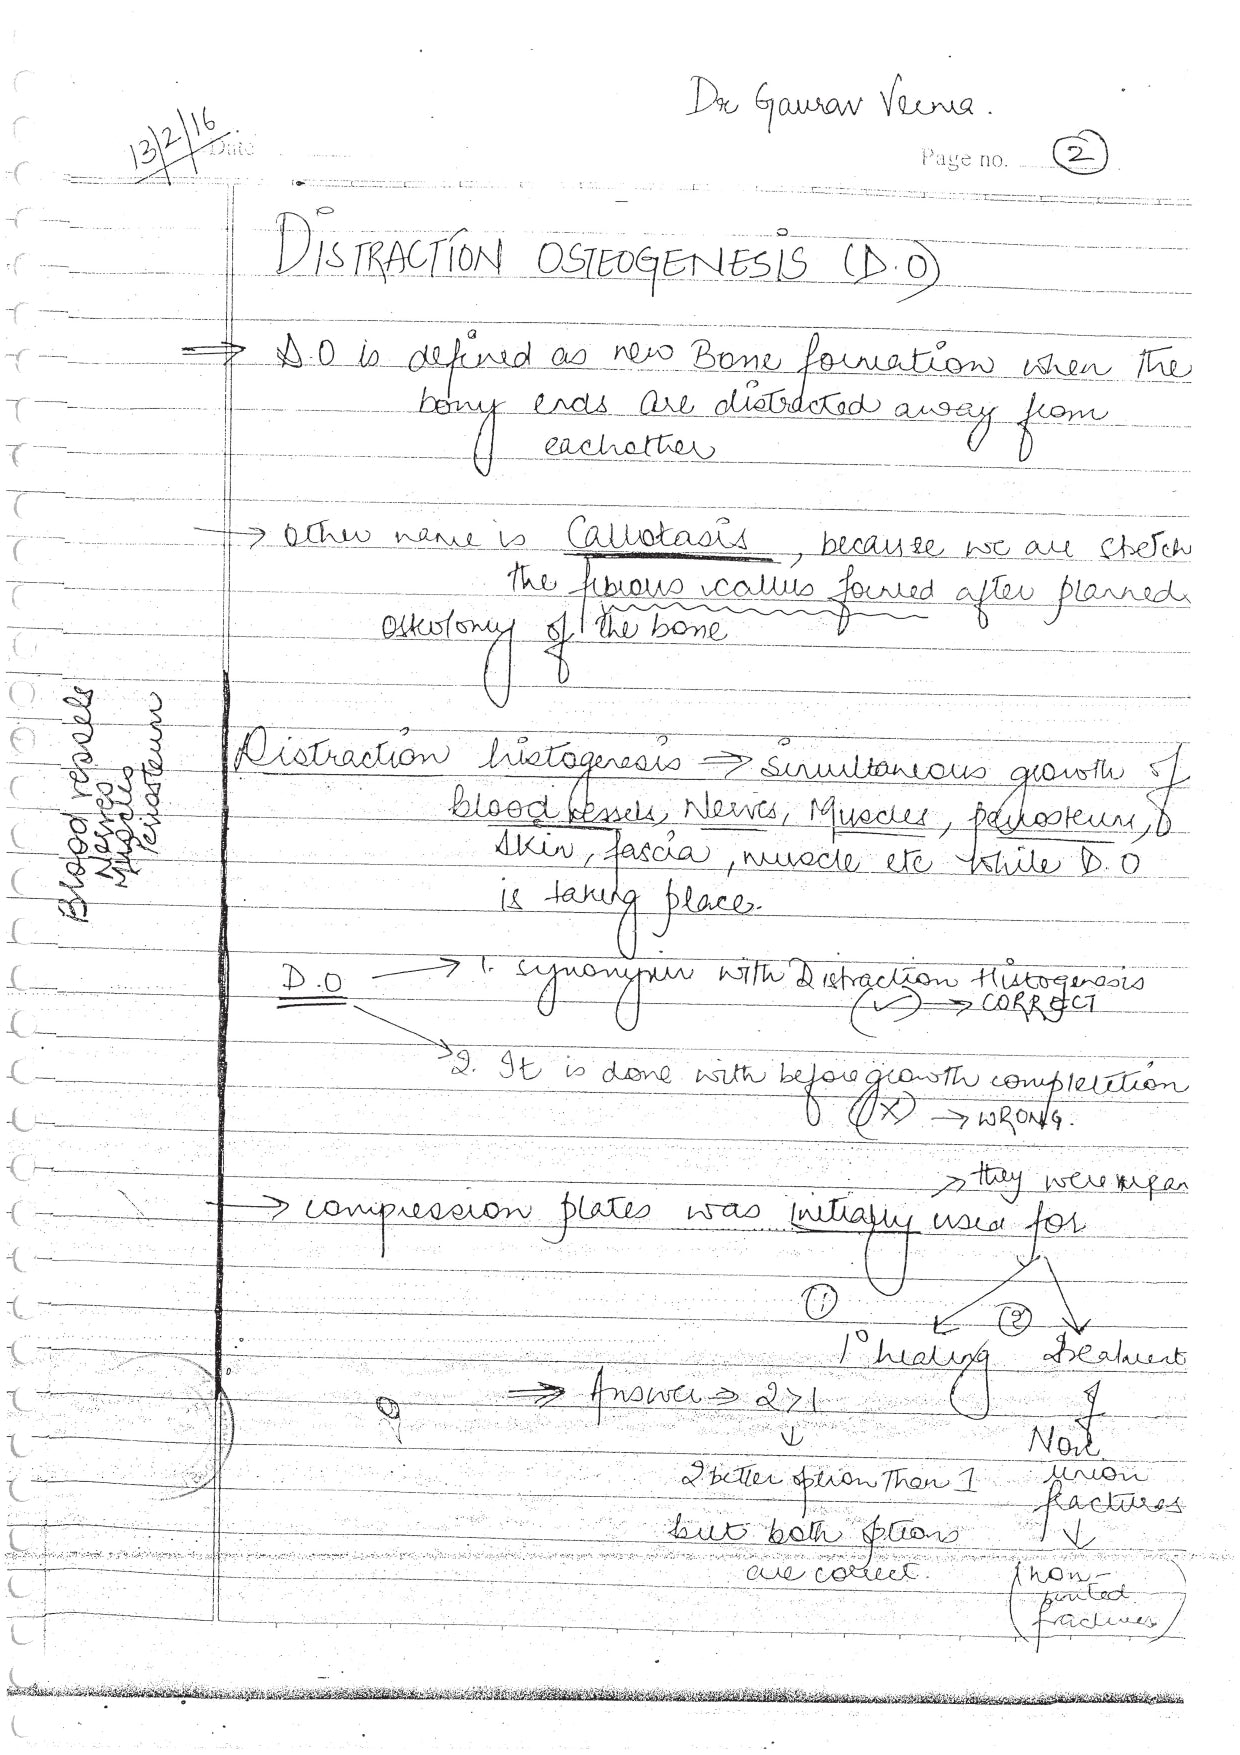 Dr Gaurav Verma.
13/2/16
Date
Page no. 2
DISTRACTION OSTEOGENESIS (D.O)
⇒ D.O is defined as new Bone formation when the
bony ends are distracted away from
eachother
→ Other name is Callotasis, because we are stretch
the fibrous callus formed after planned
osteotomy of the bone
Blood vessels
Nerves
Muscles
Periosteum
Distraction histogenesis → Simultaneous growth of
blood vessels, Nerves, Muscles, periosteum,
skin, fascia, muscle etc while D.O
is taking place.
D.O → 1. synonymn with Distraction Histogenesis
(✓) → CORRECT
→ 2. It is done with before growth completetion
(X) → WRONG.
→ they were
→ compression plates was initially used for
① ②
1° healing Treatment
⇒ Answer ⇒ 2>1 of
↓ Non
2 better option than 1 union
but both options fractures
are correct. ↓
(non-
united
fractures)